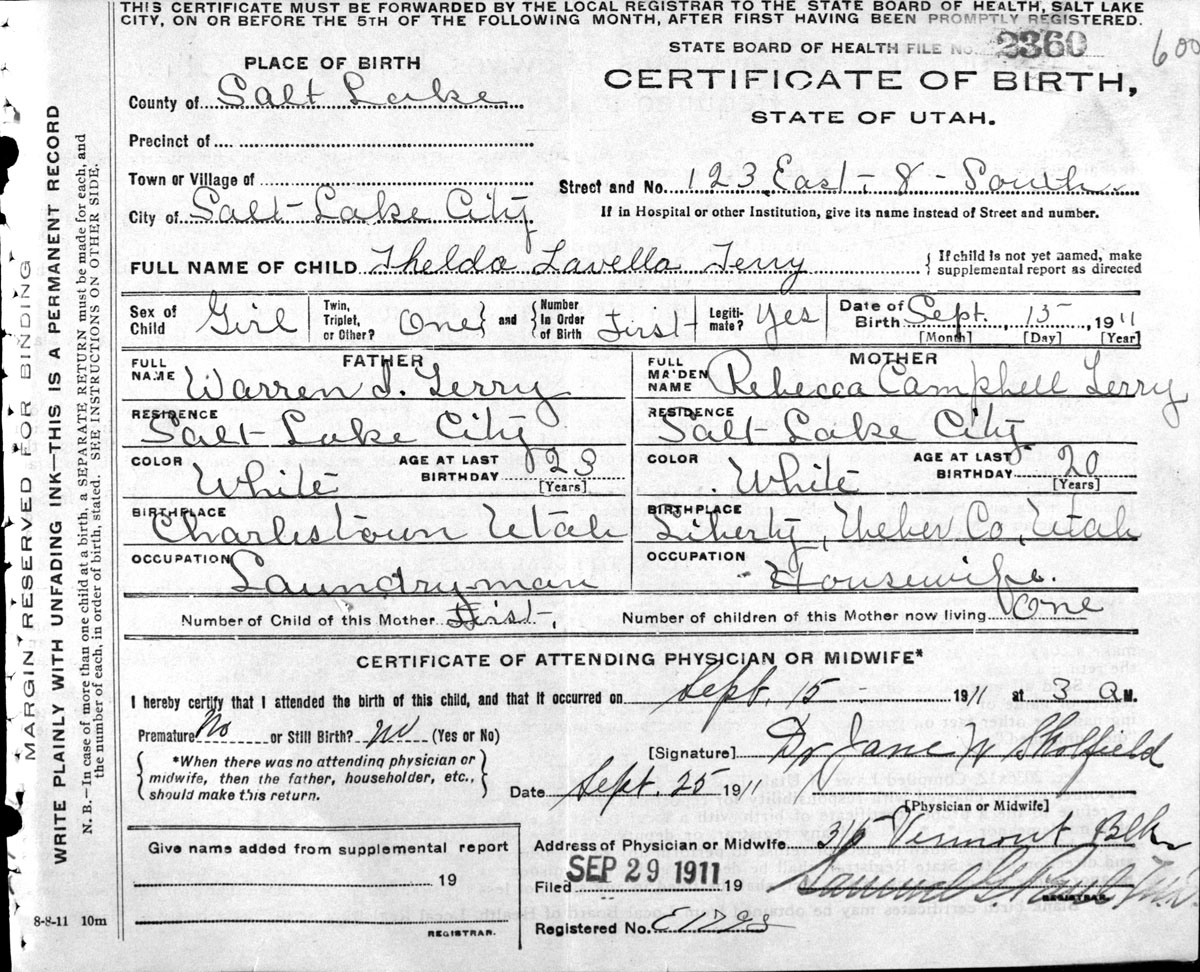 THIS CERTIFICATE MUST BE FORWARDED BY THE LOCAL REGISTRAR TO THE STATE BOARD OF HEALTH, SALT LAKE
CITY, ON OR BEFORE THE 5TH OF THE FOLLOWING MONTH, AFTER FIRST HAVING BEEN PROMPTLY REGISTERED.
STATE BOARD OF HEALTH FILE No. 2360
600
PLACE OF BIRTH
CERTIFICATE OF BIRTH,
STATE OF UTAH.
County of Salt Lake
Precinct of
Town or Village of
Street and No. 123 East - 8 - South
City of Salt Lake City
If in Hospital or other Institution, give its name instead of Street and number.
FULL NAME OF CHILD Thelda Lavella Terry
{ If child is not yet named, make
supplemental report as directed
Sex of Child Girl
Twin, Triplet, or Other? One } and { Number In Order of Birth First
Legitimate? Yes
Date of Birth Sept. 15, 1911
[Month] [Day] [Year]
FATHER
FULL NAME Warren I. Terry
MOTHER
FULL MAIDEN NAME Rebecca Campbell Terry
RESIDENCE Salt Lake City
RESIDENCE Salt Lake City
COLOR White AGE AT LAST BIRTHDAY 23 [Years]
COLOR White AGE AT LAST BIRTHDAY 20 [Years]
BIRTHPLACE Charlestown Utah
BIRTHPLACE Liberty, Weber Co, Utah
OCCUPATION Laundryman
OCCUPATION Housewife.
Number of Child of this Mother First.
Number of children of this Mother now living One
CERTIFICATE OF ATTENDING PHYSICIAN OR MIDWIFE*
I hereby certify that I attended the birth of this child, and that it occurred on Sept. 15 - 1911 at 3 A.M.
Premature No or Still Birth? No (Yes or No)
{ *When there was no attending physician or
midwife, then the father, householder, etc.,
should make this return. }
[Signature] Dr Jane W Skolfield
Date Sept. 25 1911
[Physician or Midwife]
Address of Physician or Midwife Vermont Blk
Give name added from supplemental report
19
REGISTRAR.
Filed SEP 29 1911 19
REGISTRAR.
Registered No.
8-8-11 10m
MARGIN RESERVED FOR BINDING
WRITE PLAINLY WITH UNFADING INK—THIS IS A PERMANENT RECORD
N. B.—In case of more than one child at a birth, a SEPARATE RETURN must be made for each, and
the number of each, in order of birth, stated. SEE INSTRUCTIONS ON OTHER SIDE.